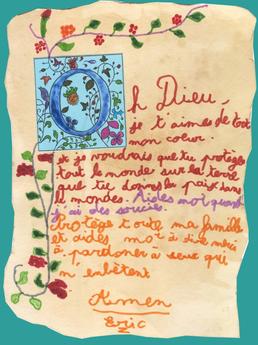 Oh Dieu,
je t'aimes de tout
mon coeur.
et je voudrais que tu protèges
tout le monde sur la terre
que tu donnes la paix dans
le mondes. Aides moi quand
j'ai des soucies.
Protège toute ma famille
et aides moi à dire merci
à pardoner a seux qui
m'enbètent
Amen
Eric